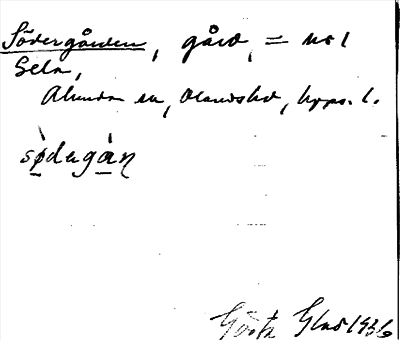 Södergården, gård, = nr 1
Gela,
Alunda sn, Olandshd, Upps. l.
sö̀dagàṇ
Gösta Glas 1936